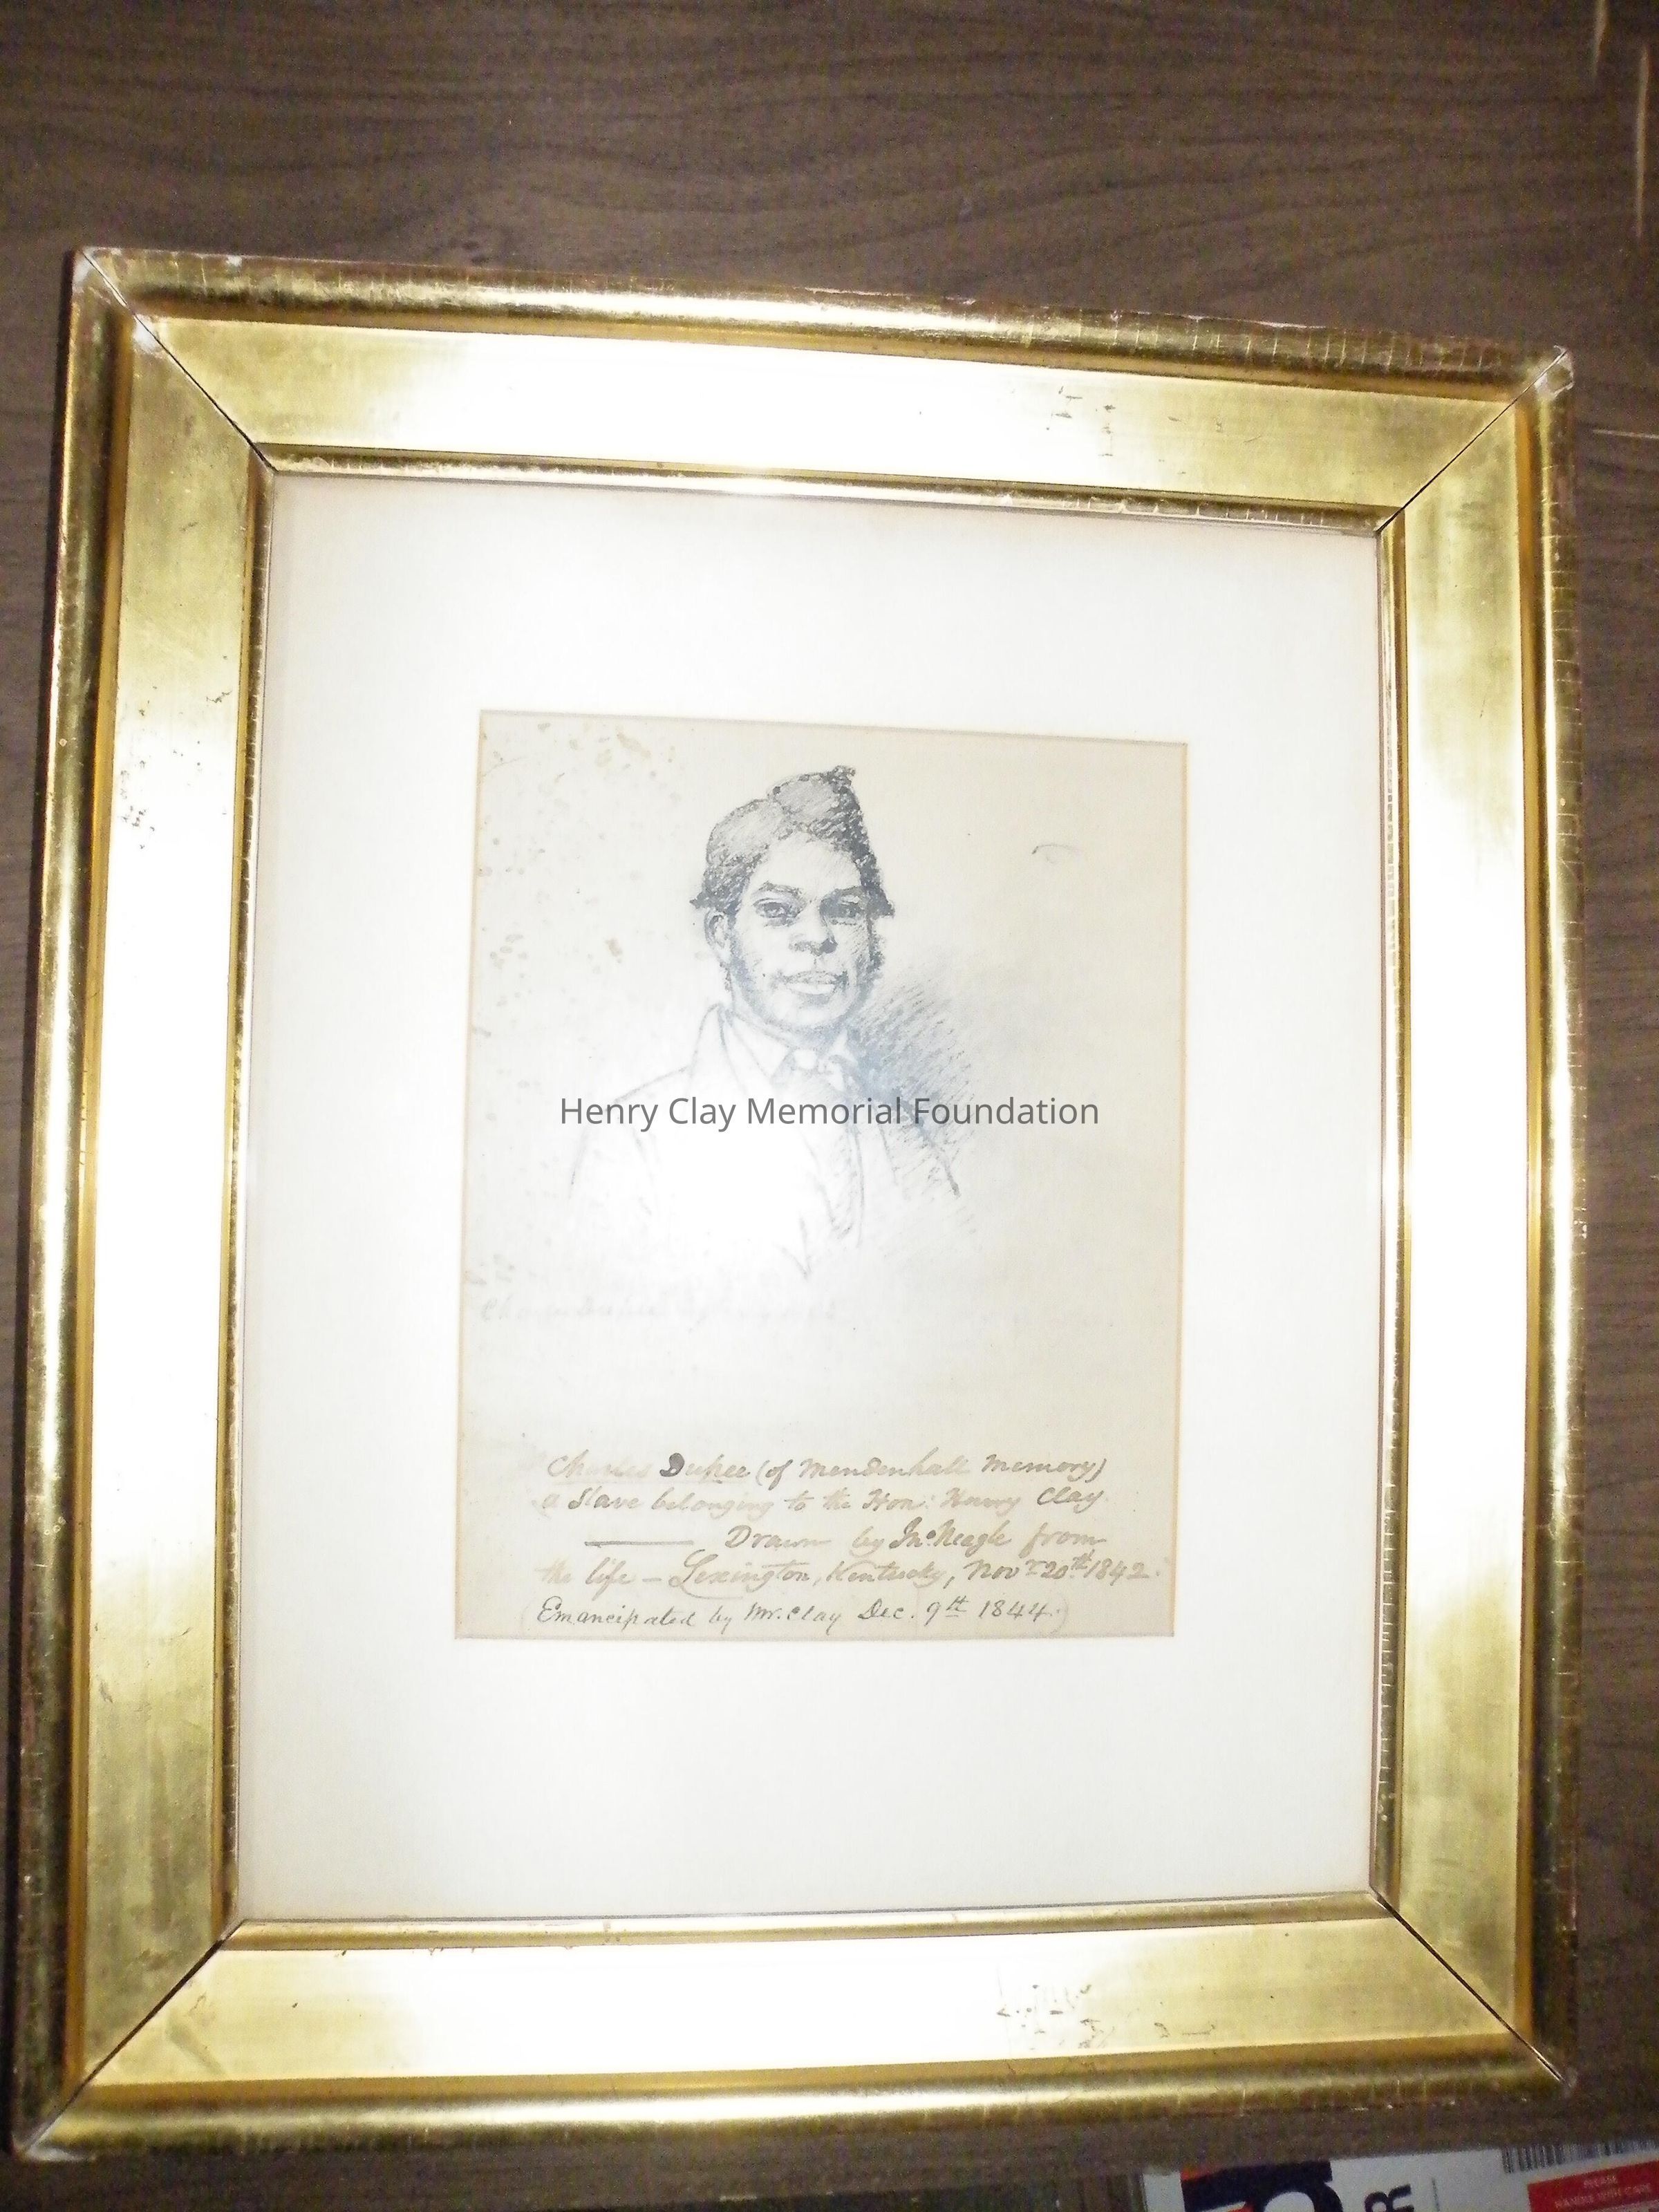 Henry Clay Memorial Foundation
Charles Dupee (of Mendenhall Memory)
a Slave belonging to the Hon. Henry Clay
Drawn by Jno Neagle from
the life — Lexington, Kentucky, Novr 20th 1842.
(Emancipated by Mr. Clay Dec. 9th 1844.)
R
PLEASE
HANDLE WITH CARE